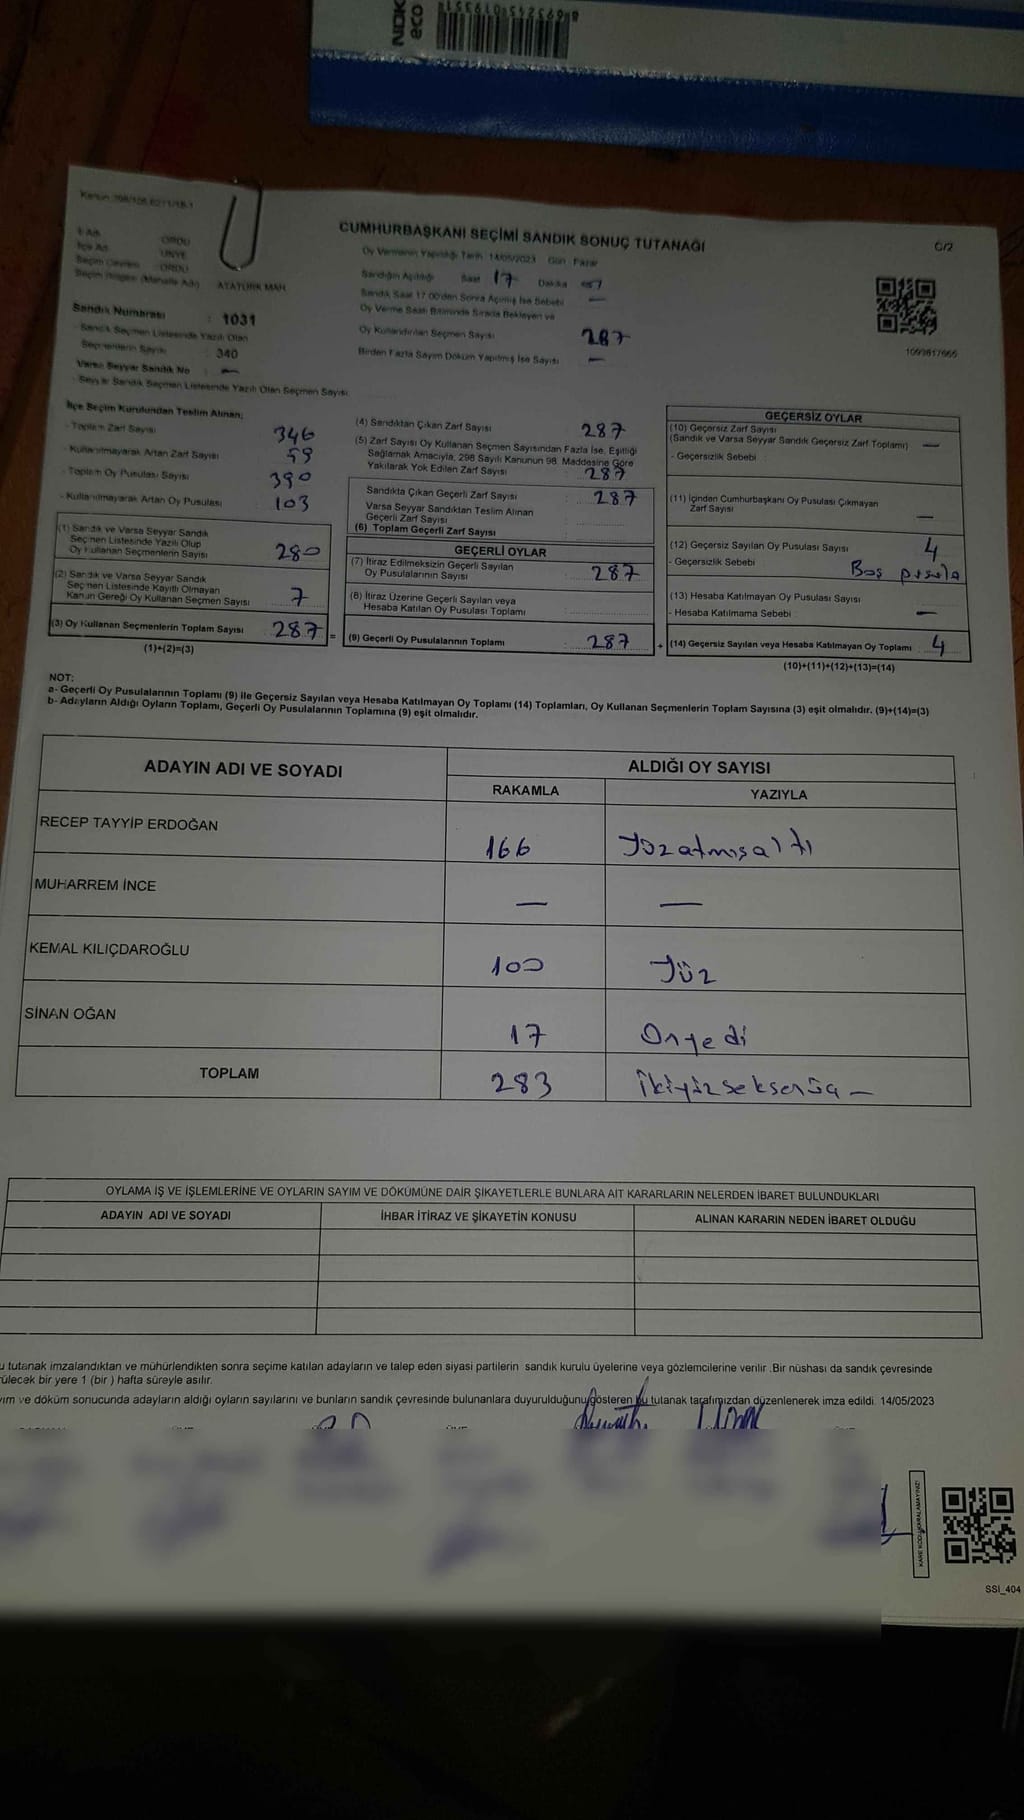 NOK
eco
Kanun:298/105,6271/18-1
İl Adı : ORDU
İlçe Adı : ÜNYE
Seçim Çevresi : ORDU
Seçim Bölgesi (Mahalle Adı) : ATATÜRK MAH.
Sandık Numarası : 1031
- Sandık Seçmen Listesinde Yazılı Olan
Seçmenlerin Sayısı : 340
Varsa Seyyar Sandık No : —
- Seyyar Sandık Seçmen Listesinde Yazılı Olan Seçmen Sayısı:
CUMHURBAŞKANI SEÇİMİ SANDIK SONUÇ TUTANAĞI
C/2
Oy Vermenin Yapıldığı Tarih: 14/05/2023 Gün: Pazar
Sandığın Açıldığı Saat 17 Dakika
Sandık Saat 17.00'den Sonra Açılmış İse Sebebi —
Oy Verme Saati Bitiminde Sırada Bekleyen ve
Oy Kullandırılan Seçmen Sayısı 287
Birden Fazla Sayım Döküm Yapılmış İse Sayısı —
1093817666
İlçe Seçim Kurulundan Teslim Alınan;
- Toplam Zarf Sayısı 346
- Kullanılmayarak Artan Zarf Sayısı 59
- Toplam Oy Pusulası Sayısı 390
- Kullanılmayarak Artan Oy Pusulası 103
(1) Sandık ve Varsa Seyyar Sandık
Seçmen Listesinde Yazılı Olup
Oy Kullanan Seçmenlerin Sayısı 280
(2) Sandık ve Varsa Seyyar Sandık
Seçmen Listesinde Kayıtlı Olmayan
Kanun Gereği Oy Kullanan Seçmen Sayısı 7
(3) Oy Kullanan Seçmenlerin Toplam Sayısı 287 =
(1)+(2)=(3)
(4) Sandıktan Çıkan Zarf Sayısı : 287
(5) Zarf Sayısı Oy Kullanan Seçmen Sayısından Fazla İse, Eşitliği
Sağlamak Amacıyla, 298 Sayılı Kanunun 98. Maddesine Göre
Yakılarak Yok Edilen Zarf Sayısı : 287
Sandıkta Çıkan Geçerli Zarf Sayısı : 287
Varsa Seyyar Sandıktan Teslim Alınan
Geçerli Zarf Sayısı :
(6) Toplam Geçerli Zarf Sayısı :
GEÇERLİ OYLAR
(7) İtiraz Edilmeksizin Geçerli Sayılan
Oy Pusulalarının Sayısı : 287
(8) İtiraz Üzerine Geçerli Sayılan veya
Hesaba Katılan Oy Pusulası Toplamı :
(9) Geçerli Oy Pusulalarının Toplamı : 287 +
GEÇERSİZ OYLAR
(10) Geçersiz Zarf Sayısı
(Sandık ve Varsa Seyyar Sandık Geçersiz Zarf Toplamı) —
- Geçersizlik Sebebi :
(11) İçinden Cumhurbaşkanı Oy Pusulası Çıkmayan
Zarf Sayısı —
(12) Geçersiz Sayılan Oy Pusulası Sayısı 4
- Geçersizlik Sebebi : Boş pusula
(13) Hesaba Katılmayan Oy Pusulası Sayısı
- Hesaba Katılmama Sebebi : —
(14) Geçersiz Sayılan veya Hesaba Katılmayan Oy Toplamı : 4
(10)+(11)+(12)+(13)=(14)
NOT:
a- Geçerli Oy Pusulalarının Toplamı (9) ile Geçersiz Sayılan veya Hesaba Katılmayan Oy Toplamı (14) Toplamları, Oy Kullanan Seçmenlerin Toplam Sayısına (3) eşit olmalıdır. (9)+(14)=(3)
b- Adayların Aldığı Oyların Toplamı, Geçerli Oy Pusulalarının Toplamına (9) eşit olmalıdır.
ADAYIN ADI VE SOYADI
ALDIĞI OY SAYISI
RAKAMLA YAZIYLA
RECEP TAYYİP ERDOĞAN 166 Yüzatmışaltı
MUHARREM İNCE — —
KEMAL KILIÇDAROĞLU 100 Yüz
SİNAN OĞAN 17 Onyedi
TOPLAM 283 İkiyüzseksenüç —
OYLAMA İŞ VE İŞLEMLERİNE VE OYLARIN SAYIM VE DÖKÜMÜNE DAİR ŞİKAYETLERLE BUNLARA AİT KARARLARIN NELERDEN İBARET BULUNDUKLARI
ADAYIN ADI VE SOYADI İHBAR İTİRAZ VE ŞİKAYETİN KONUSU ALINAN KARARIN NEDEN İBARET OLDUĞU
u tutanak imzalandıktan ve mühürlendikten sonra seçime katılan adayların ve talep eden siyasi partilerin sandık kurulu üyelerine veya gözlemcilerine verilir .Bir nüshası da sandık çevresinde
ülecek bir yere 1 (bir ) hafta süreyle asılır.
yım ve döküm sonucunda adayların aldığı oyların sayılarını ve bunların sandık çevresinde bulunanlara duyurulduğunu gösteren bu tutanak tarafımızdan düzenlenerek imza edildi. 14/05/2023
KARE KODU KARALAMAYINIZ!
SSI_404